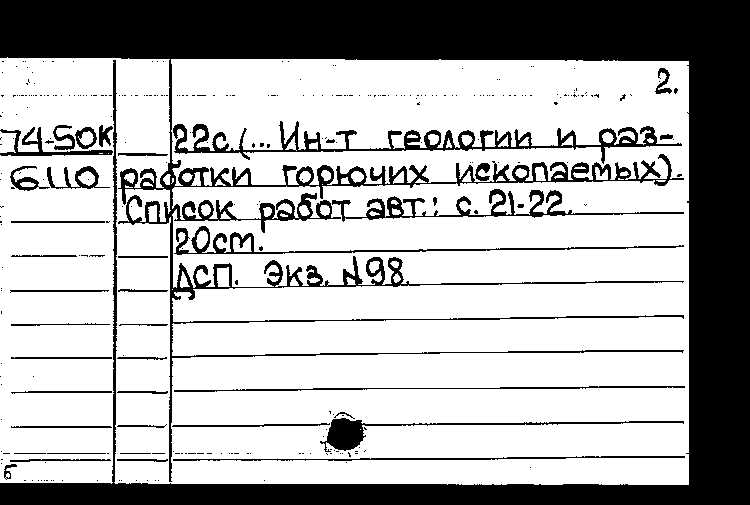 2.
74-5OK 22с. (... Ин-т геологии и раз-
6110 работки горючих ископаемых).
Список работ авт.: с. 21-22.
20см.
ДСП. Экз. №98.
б